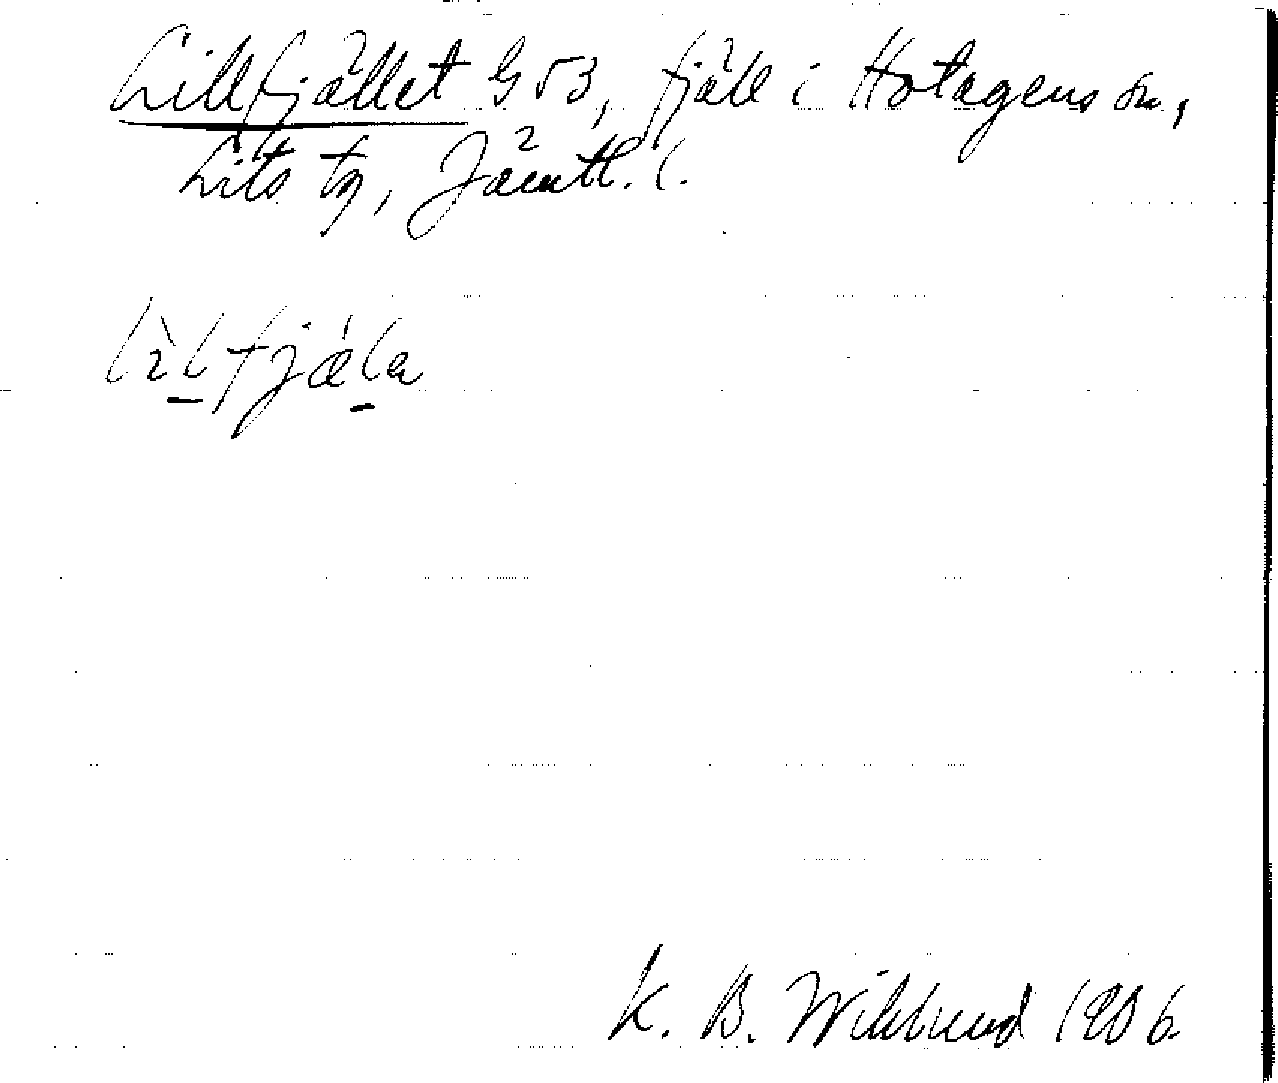 Lillfjället G53, fjäll i Hotagens sn,
Lits tg, Jämtl. l.
lìlfjǽla
K. B. Wiklund 1906